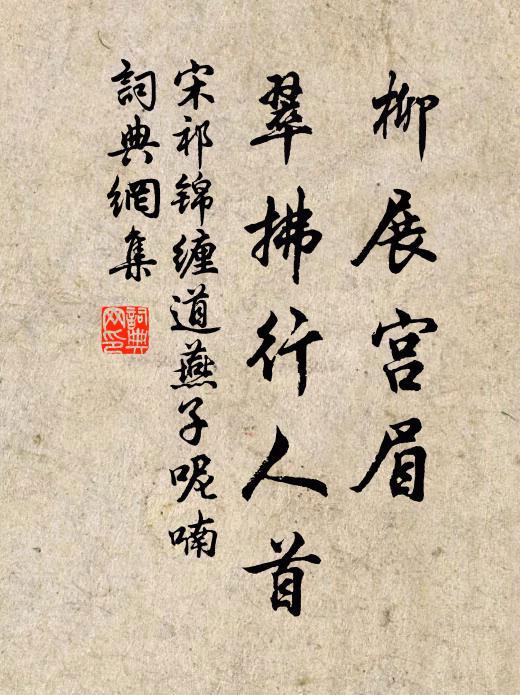 柳展宫眉
翠拂行人首
宋祁锦缠道燕子呢喃
詞典網集
詞典网印